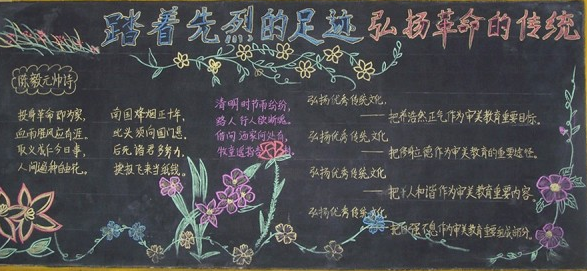 踏着先烈的足迹 弘扬革命的传统
陈毅元帅诗
投身革命即为家,
血雨腥风应有涯。
取义成仁今日事,
人间遍种自由花。
南国烽烟正十年,
此头须向国门悬。
后死诸君多努力,
捷报飞来当纸钱。
清明时节雨纷纷,
路人行人欲断魂。
借问酒家何处有,
牧童遥指
弘扬优秀传统文化,
——把养浩然正气作为审美教育重要目标。
弘扬优秀传统文化,
——把修身立德作为审美教育的重要途径。
弘扬优秀传统文化
——把人和谐作为审美教育重要内容。
弘扬优秀传统文化
——把自强不息作为审美教育重要组成部分。